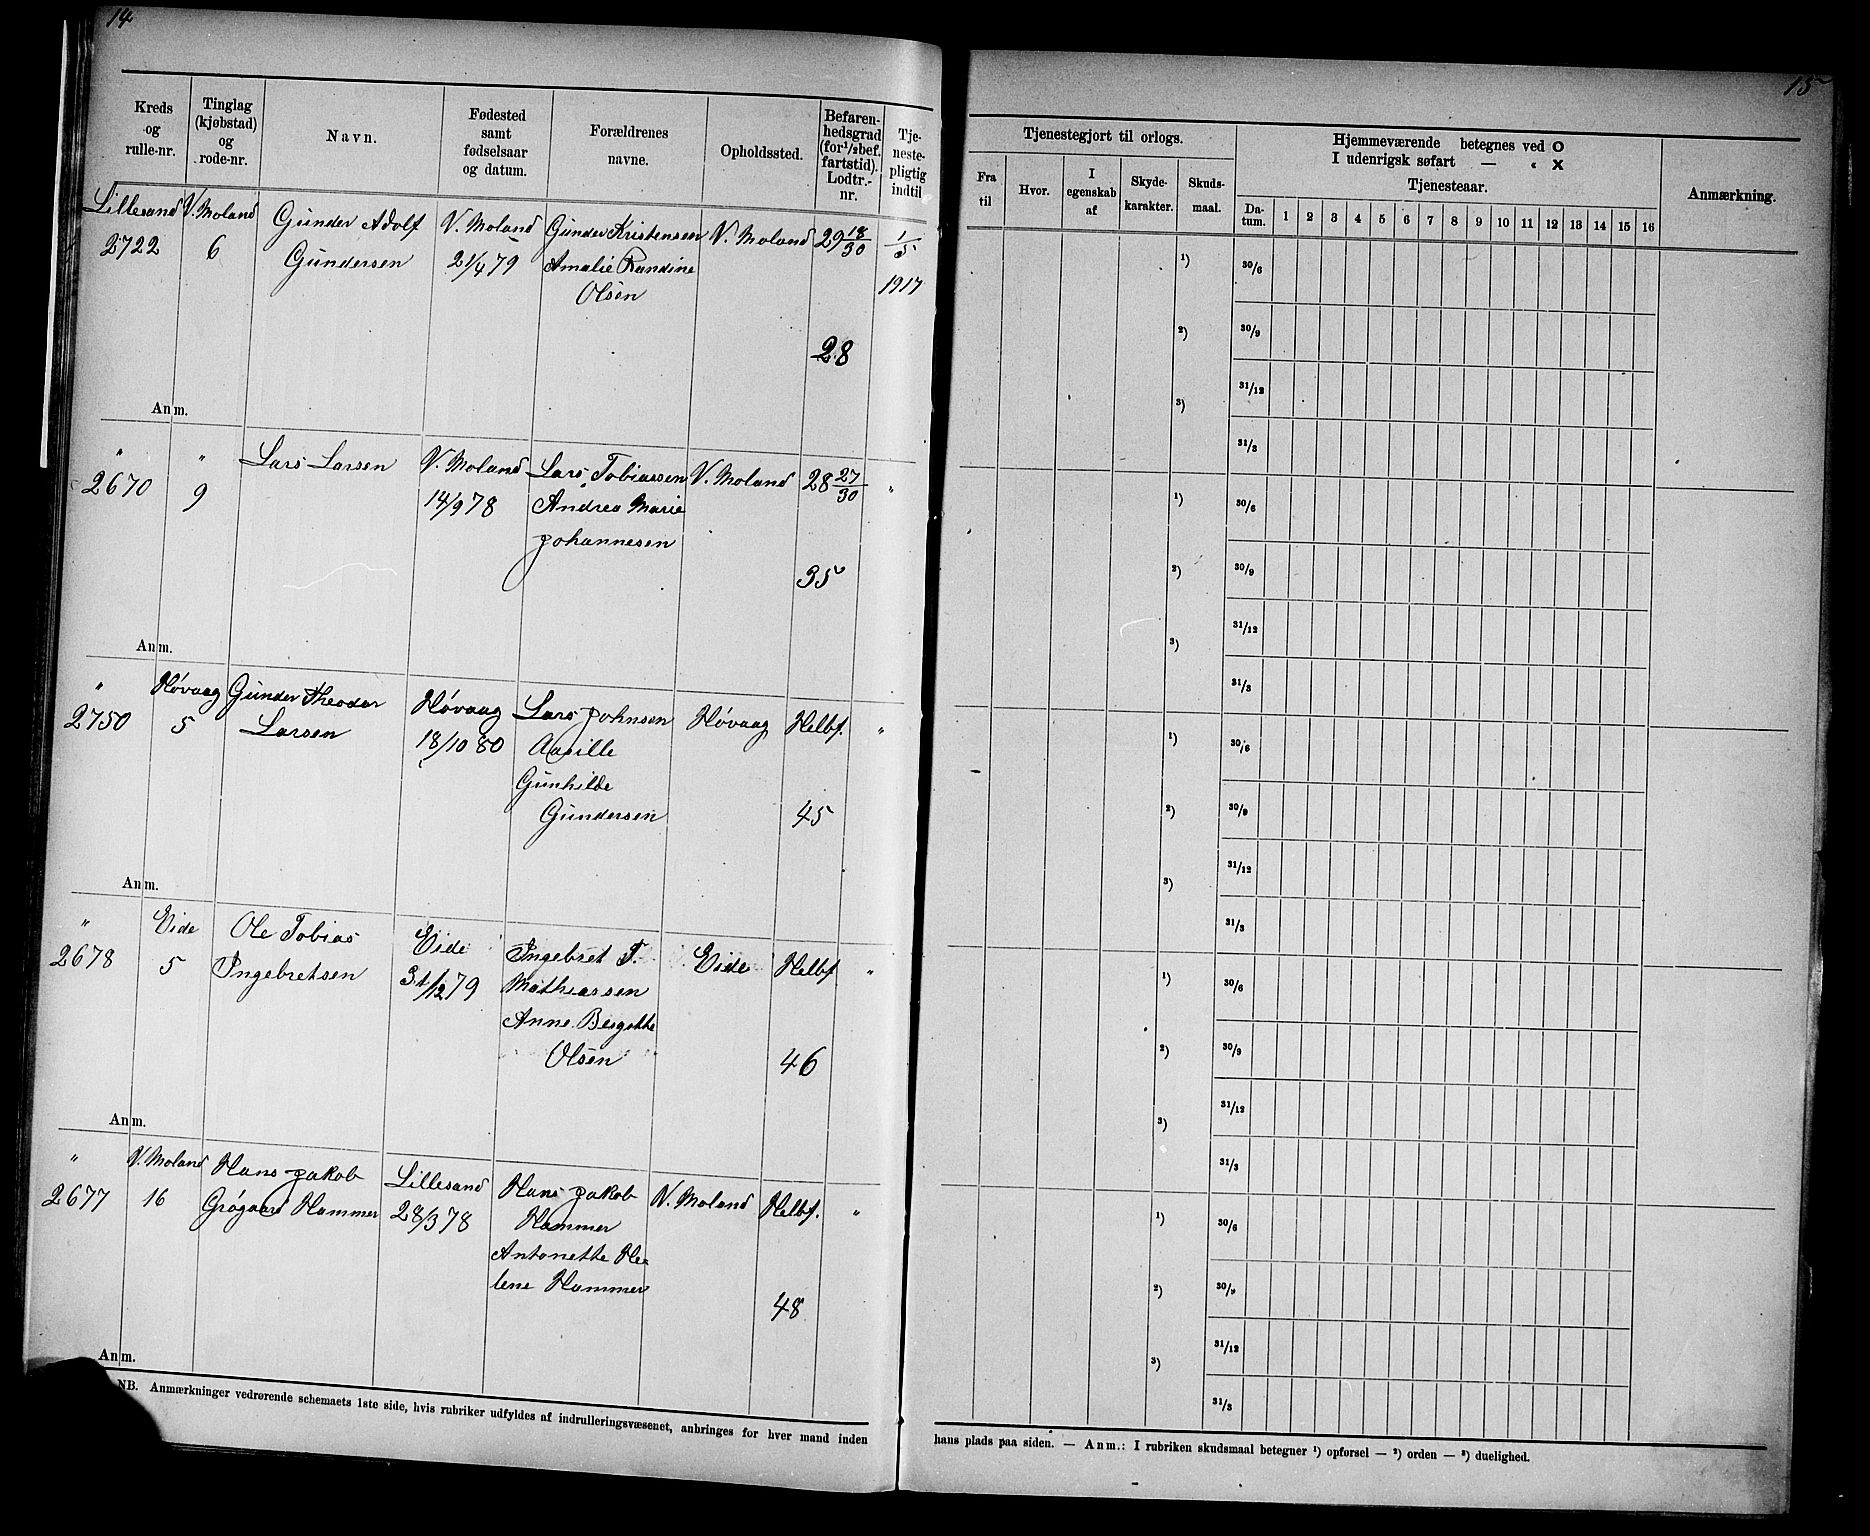 14
Kreds og rulle-nr.
Tinglag (kjøbstad) og rode-nr.
Navn.
Fødested samt fødselsaar og datum.
Forældrenes navne.
Opholdssted.
Befaren-hedsgrad (for 1/2 bef. fartstid). Lodtr.-nr.
Tje-neste-pligtig indtil
Lillesand V. Moland Gunder Adolf V. Moland Gunder Kristensen V. Moland 29 18/30 1/5
2722 6 Gundersen 21/4 79 Amalie Randine 1917
Olsen
28
Anm.
" " Lars Larsen V. Moland Lars Tobiassen V. Moland 28 27/30 "
2670 9 14/9 78 Andrea Marie
Johannesen
35
Anm.
" Høvaag Gunder Theodor Høvaag Lars Johnsen Høvaag Helbf. "
2750 5 Larsen 18/10 80 Aasille
Gunhilde
Gundersen 45
Anm.
" Eide Ole Tobias Eide Ingebret T. Eide Helbf "
2678 5 Ingebretsen 31/12 79 Mathiassen
Anne Bergitte
Olsen 46
Anm.
" V. Moland Hans Jakob Lillesand Hans Jakob V. Moland Helbf. "
2677 16 Grøgaard Hammer 28/3 78 Hammer
Antonette He-
lene Hammer
48
Anm.
NB. Anmærkninger vedrørende schemaets 1ste side, hvis rubriker udfyldes af indrulleringsvæsenet, anbringes for hver mand inden
15
Tjenestegjort til orlogs.
Fra til
Hvor.
I egenskab af
Skyde-karakter.
Skuds-maal.
Hjemmeværende betegnes ved O
I udenrigsk søfart — « X
Tjenesteaar.
Da-tum. 1 2 3 4 5 6 7 8 9 10 11 12 13 14 15 16
Anmærkning.
1) 30/6
2) 30/9
31/12
3)
31/3
1) 30/6
2) 30/9
31/12
3)
31/3
1) 30/6
2) 30/9
31/12
3)
31/3
1) 30/6
2) 30/9
31/12
3)
31/3
1) 30/6
2) 30/9
31/12
3)
31/3
hans plads paa siden. — Anm.: I rubriken skudsmaal betegner 1) opførsel — 2) orden — 3) duelighed.